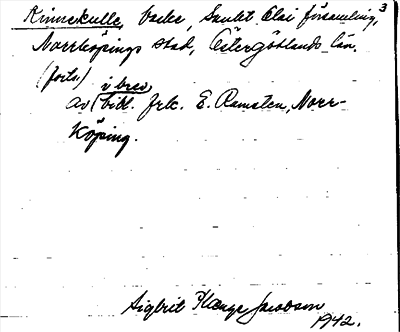 Kinnekulle, backe, Sankt Olai församling, 3
Norrköpings stad, Östergötlands län.
(forts.) i brev
av bibl. frk. E. Ramsten, Norr-
köping.
Sigbrit Plænge Jacobson
1942.